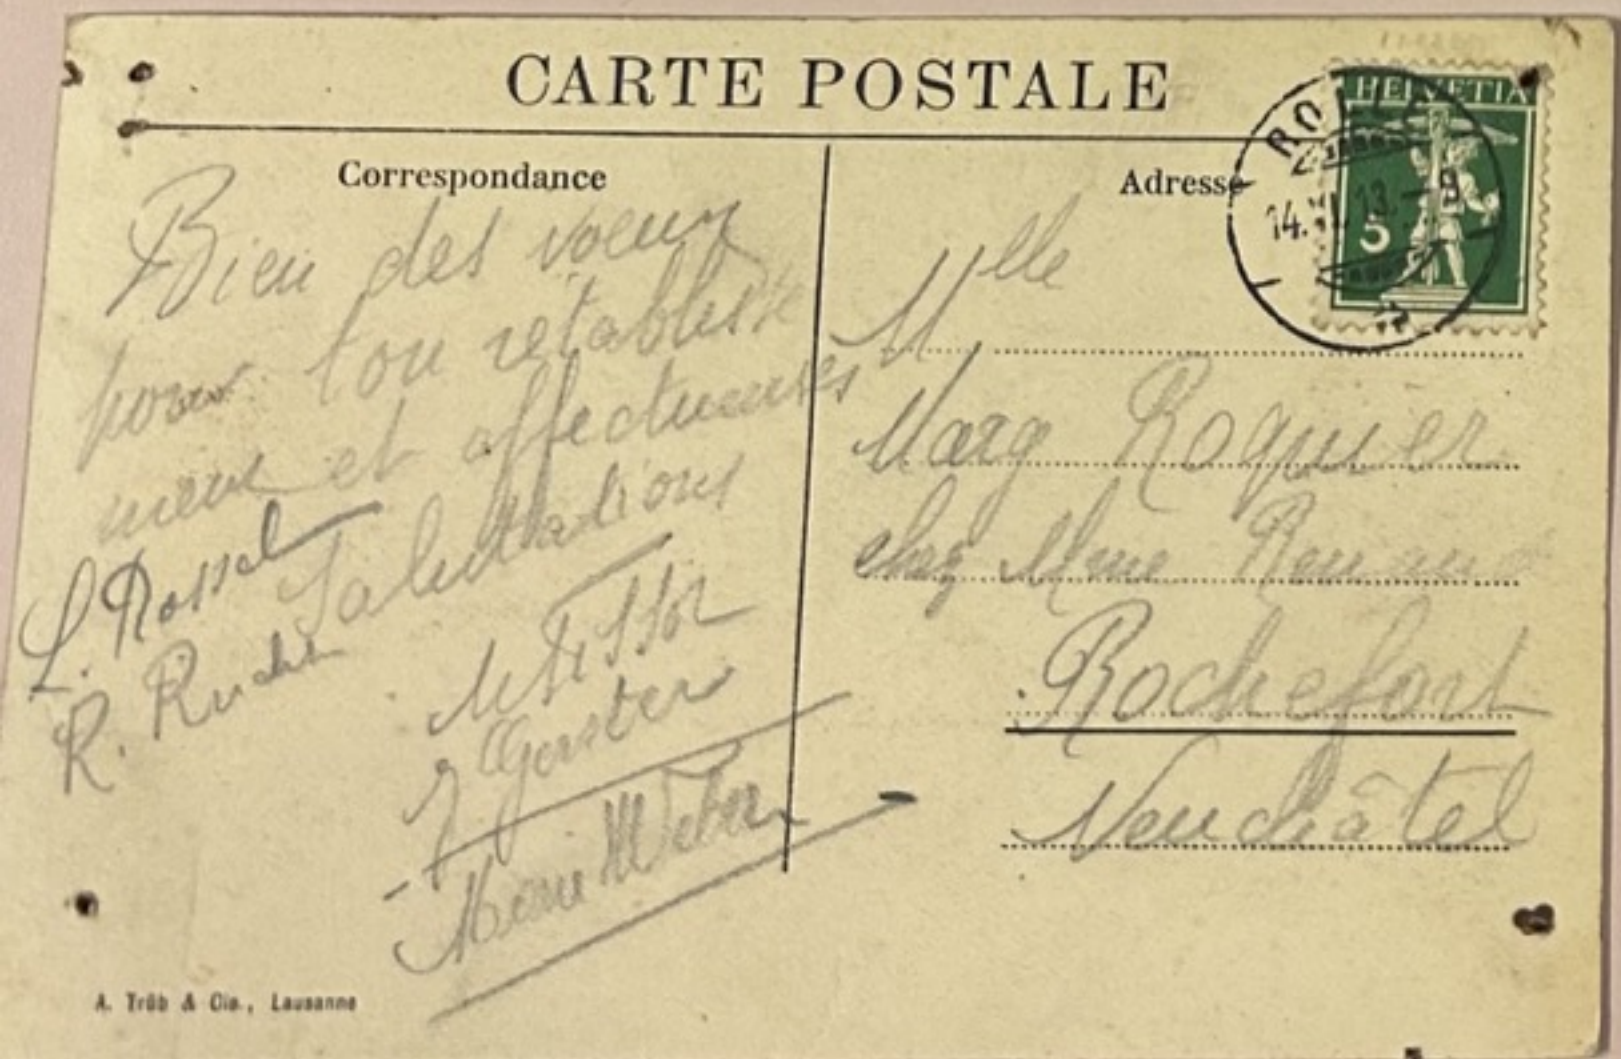 CARTE POSTALE
Correspondance
Bien des voeux
pour ton rétablisse
ment et affectueuses
salutations
L. Rossel
R.
M Tissot
J. Gerster
Weber
A. Trüb & Cie., Lausanne
Adresse
HELVETIA
5
ROLLE
14. 13. - 9
Mlle
Marg Roquier
chez Mme Renaud
Rochefort
Neuchâtel